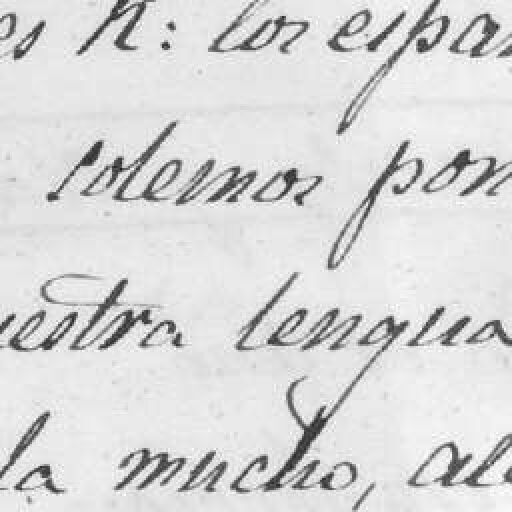 es R: los espa
solemos pon
uestra lengua
la mucho, al